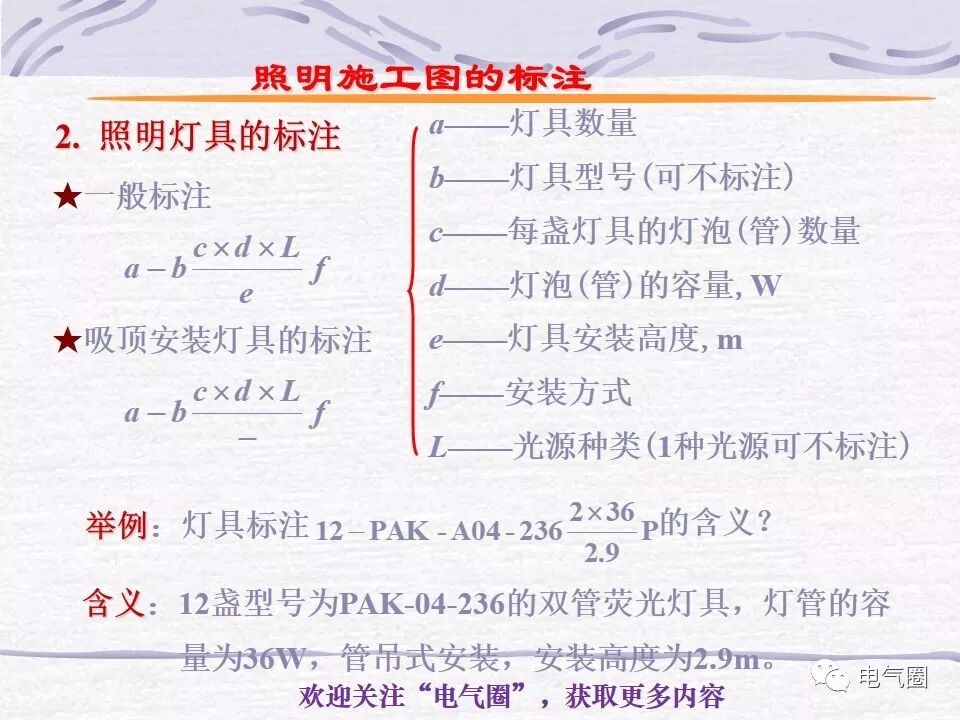 照明施工图的标注
2. 照明灯具的标注
★一般标注
a－b c×d×L/e f
★吸顶安装灯具的标注
a－b c×d×L/－ f
a——灯具数量
b——灯具型号(可不标注)
c——每盏灯具的灯泡(管)数量
d——灯泡(管)的容量,W
e——灯具安装高度,m
f——安装方式
L——光源种类(1种光源可不标注)
举例：灯具标注 12－PAK-A04-236 2×36/2.9 P的含义？
含义：12盏型号为PAK-04-236的双管荧光灯具，灯管的容
量为36W，管吊式安装，安装高度为2.9m。
欢迎关注“电气圈”，获取更多内容
电气圈